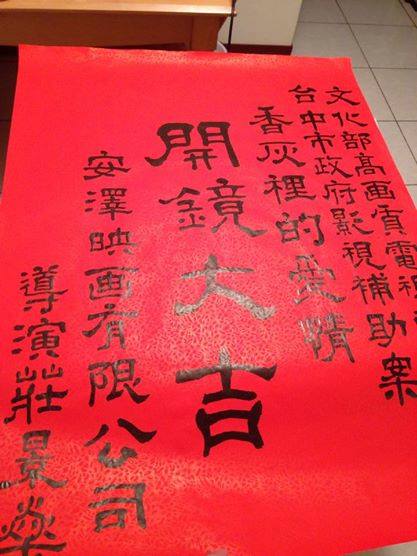 文化部高画質電視
台中市政府影視補助案
香灰裡的愛情
開鏡大吉
安澤映画有限公司
導演莊景燊